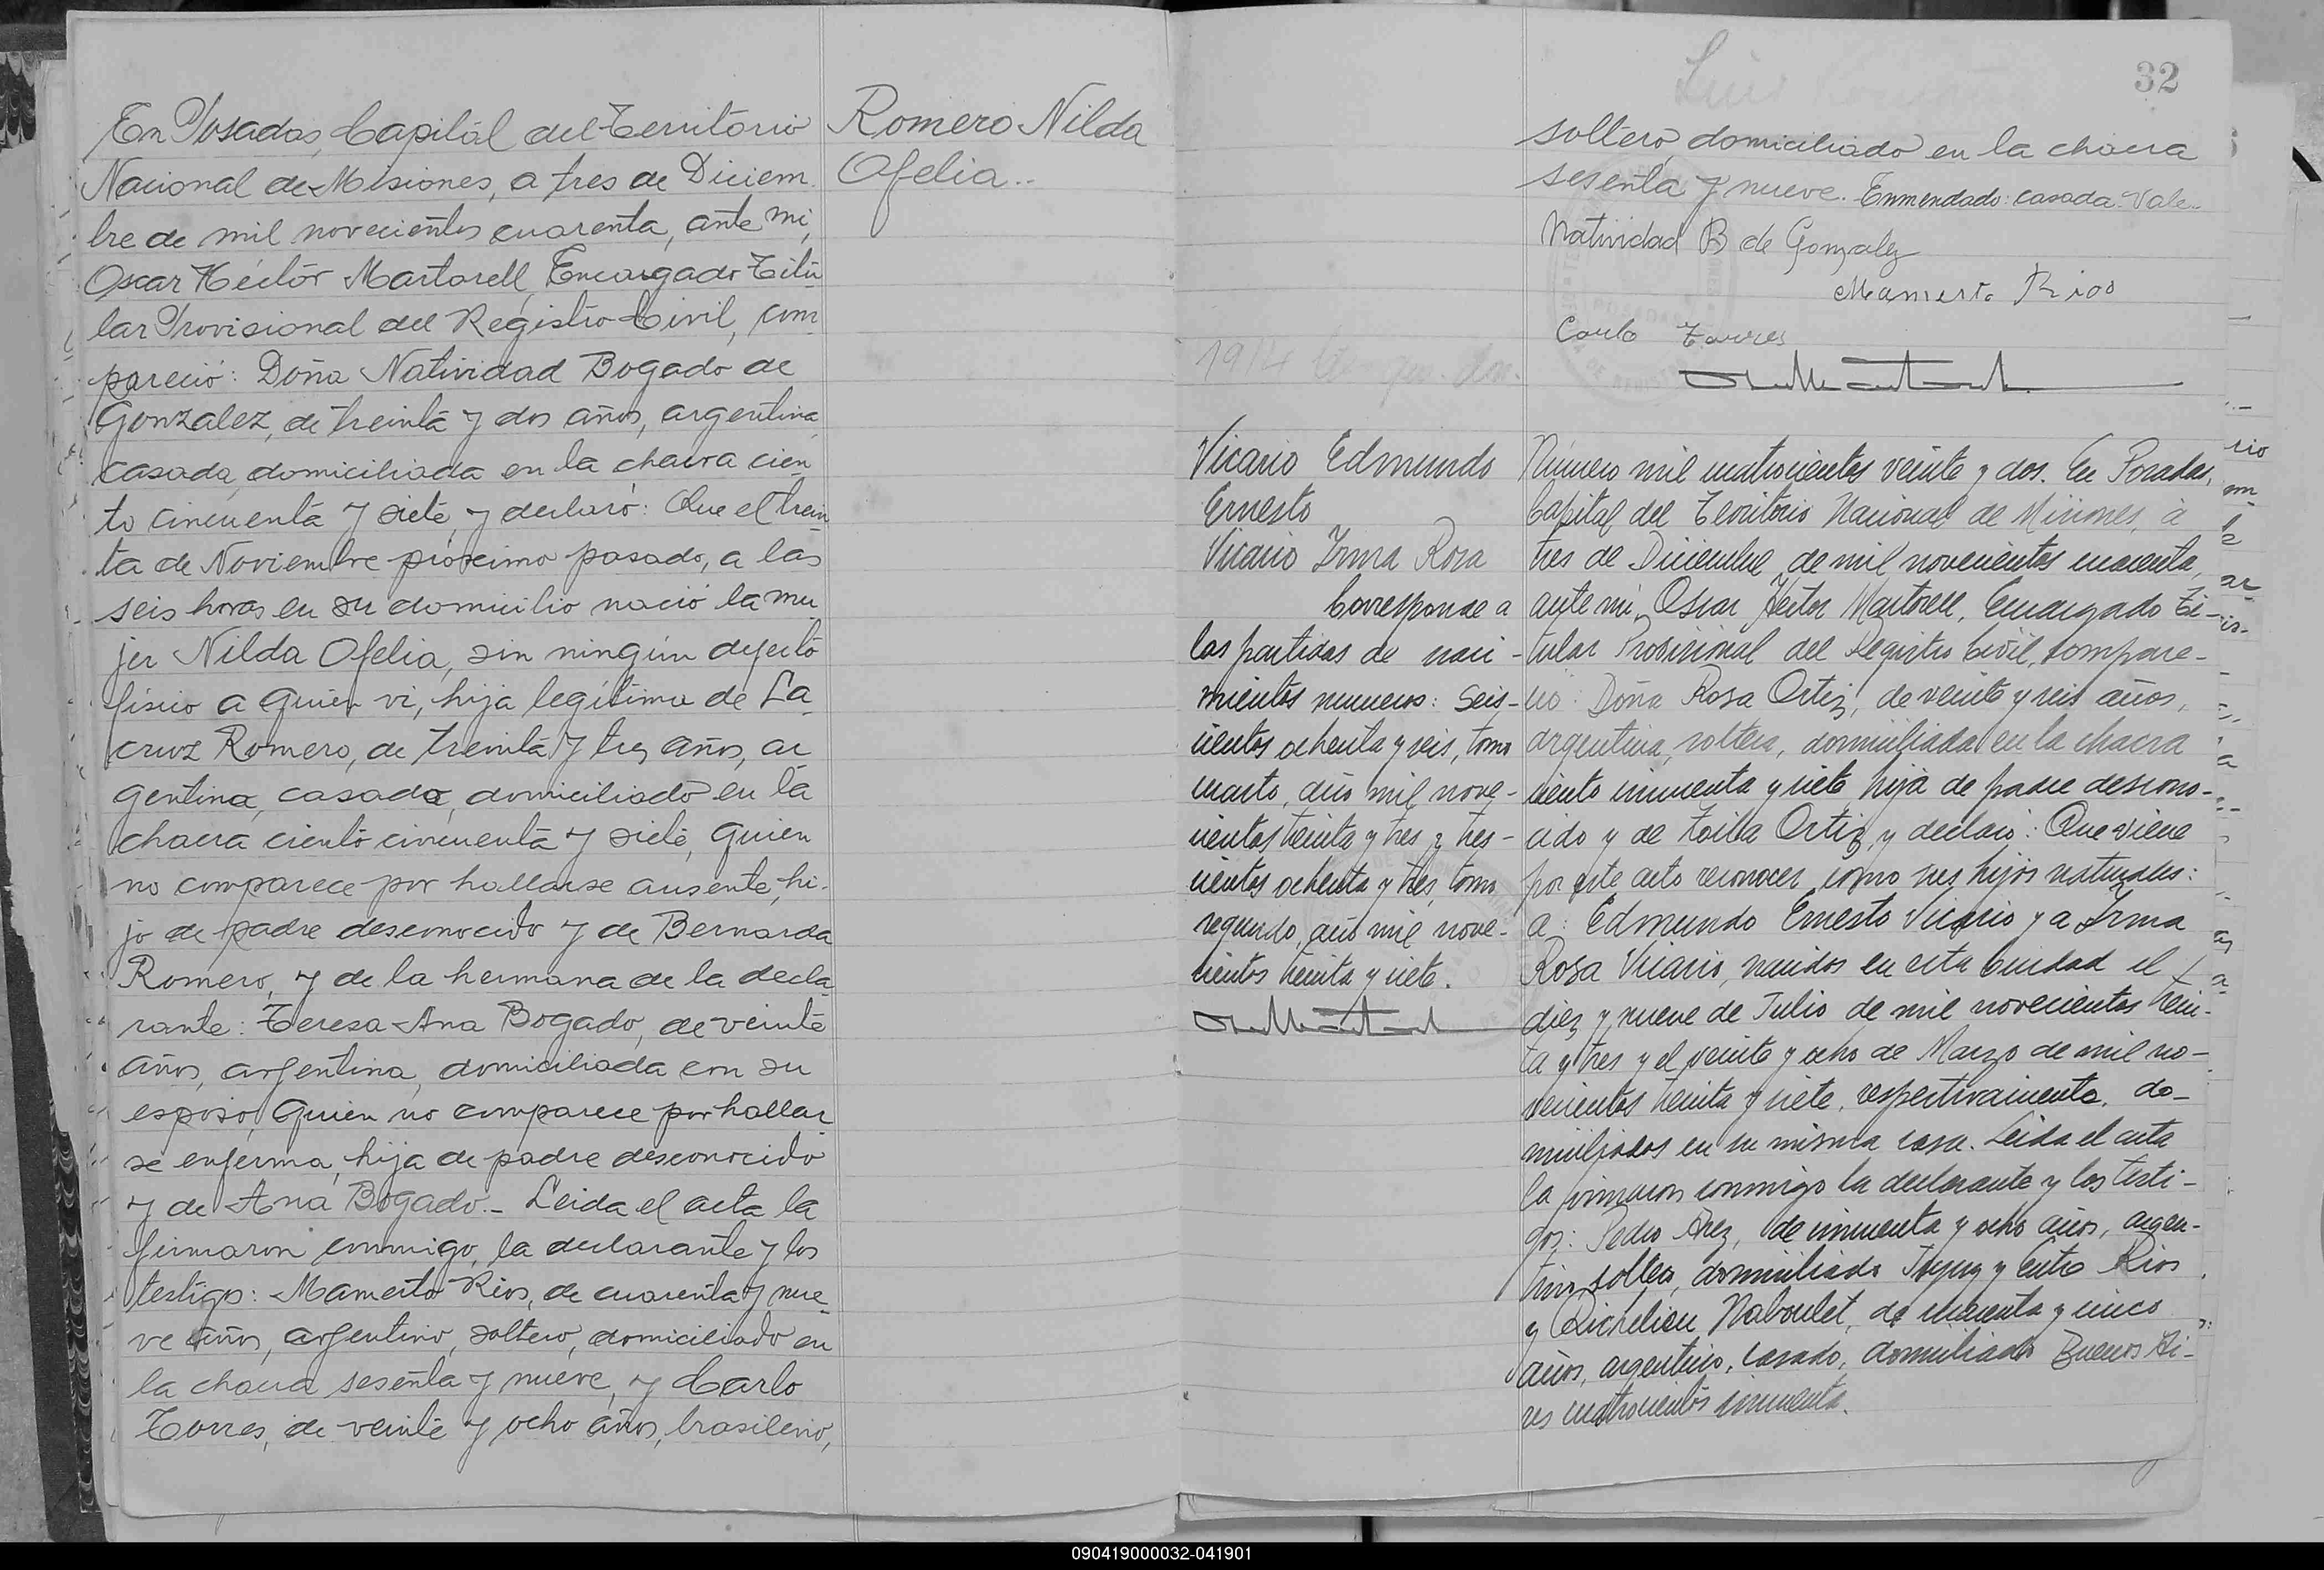 En Posadas, Capital del Territorio
Nacional de Misiones, a tres de Diciem
bre de mil novecientos cuarenta, ante mi,
Oscar Héctor Martorell, Encargado Titu
lar Provisional del Registro Civil, com
pareció: Doña Natividad Bogado de
Gonzalez, de treinta y dos años, argentina,
casada, domiciliada en la chacra cien
to cincuenta y siete, y declaró: Que el trein
ta de Noviembre próximo pasado, a las
seis horas en su domicilio nació la mu
jer Nilda Ofelia, sin ningún defecto
físico a quien vi, hija legítima de La
cruz Romero, de treinta y tres años, ar
gentina, casada, domiciliado en la
chacra ciento cincuenta y siete, quien
no comparece por hallarse ausente, hi-
jo de padre desconocido y de Bernarda
Romero, y de la hermana de la decla
rante: Teresa Ana Bogado, de veinte
años, argentina, domiciliada con su
esposo, quien no comparece por hallar
se enferma, hija de padre desconocido
y de Ana Bogado.- Leida el acta la
firmaron conmigo, la declarante y los
testigos: Mamerto Rios, de cuarenta y nue
ve años, argentino, soltero, domiciliado en
la chacra sesenta y nueve, y Carlo
Torres, de veinte y ocho años, brasilero,
Romero Nilda
Ofelia..
32
soltero, domiciliado en la chacra
sesenta y nueve. Enmendado: casada. Vale.
Natividad B de Gonzalez
Mamerto Rios
Carlo Torres
Vicario Edmundo
Ernesto
Vicario Irma Rosa
Corresponde a
las partidas de naci-
mientos numeros: Seis-
cientos ochenta y seis, tomo
cuarto, año mil nove-
cientos treinta y tres y tres-
cientos ochenta y tres, tomo
segundo, año mil nove-
cientos treinta y siete.
Número mil cuatrocientos veinte y dos. En Posadas,
Capital del Territorio Nacional de Misiones, a
tres de Diciembre de mil novecientos cuarenta,
ante mi, Oscar Héctor Martorell, Encargado Ti-
tular Provisional del Registro Civil, compare-
ció: Doña Rosa Ortiz, de veinte y seis años,
argentina, soltera, domiciliada en la chacra
ciento cincuenta y siete hija de padre descono-
cido y de Zoila Ortiz, y declaró: Que viene
por este acto reconocer como sus hijos naturales:
a: Edmundo Ernesto Vicario y a Irma
Rosa Vicario, nacidos en esta Ciudad el
diez y nueve de Julio de mil novecientos trein-
ta y tres y el veinte y ocho de Marzo de mil no-
vecientos treinta y siete, respectivamente, do-
miciliados en su misma casa. Leida el acta
la firmaron conmigo la declarante y los testi-
gos: Pedro de cincuenta y ocho años, argen-
tino, soltero, domiciliado y Entre Rios
y Richelieu Naboulet, de cincuenta y cinco
años, argentino, casado, domiciliado Buenos Ai-
res cuatrocientos cincuenta.
090419000032-041901